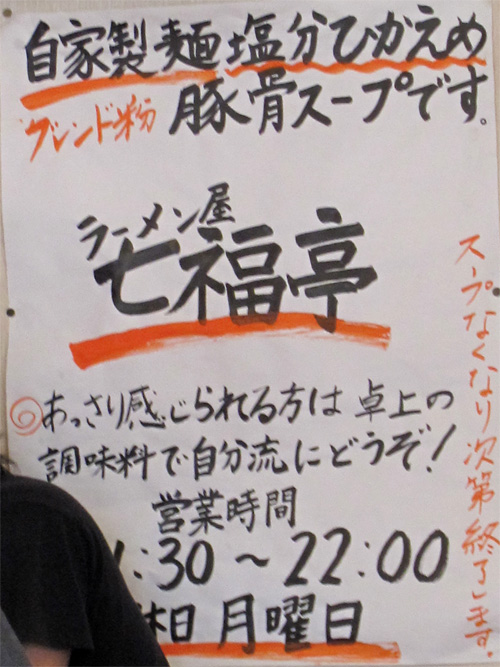 自家製麺 塩分ひかえめ
ブレンド粉 豚骨スープです。
ラーメン屋
七福亭
◎あっさり感じられる方は卓上の
調味料で自分流にどうぞ!
営業時間
:30〜22:00
休日 月曜日
スープなくなり次第終了します。